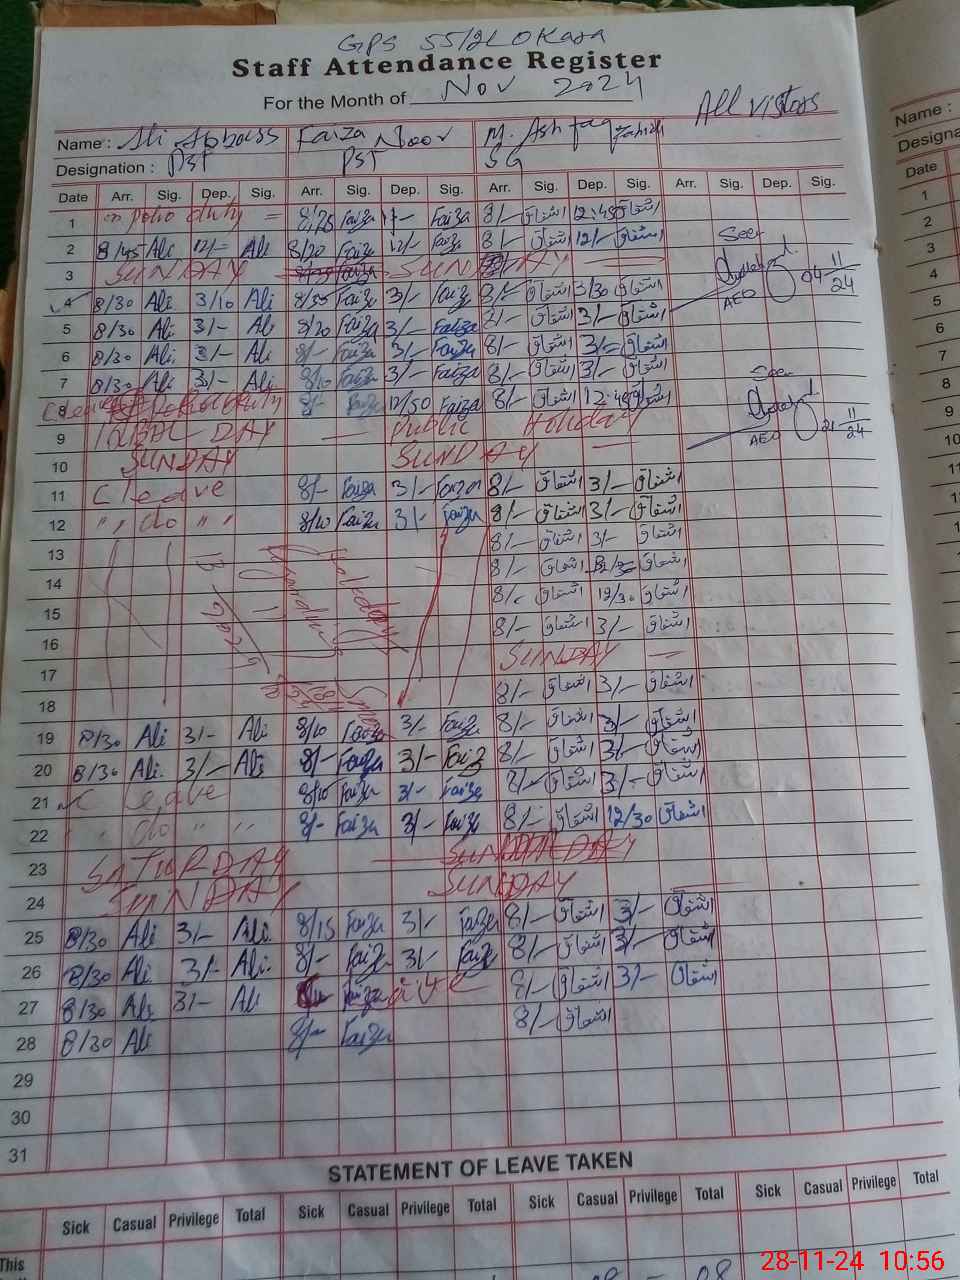 GPS 55/2L Okara
Staff Attendance Register
For the Month of Nov 2024
All visitors
Name : Ali Abbass Faiza Noor M. Ashfaq Name :
Designation : PST PST SG
Date Arr. Sig. Dep. Sig. Arr. Sig. Dep. Sig. Arr. Sig. Dep. Sig. Arr. Sig. Dep. Sig. Date
1 on polio duty = 8/25 Faiza Faiza 8/- اشفاق 12:45 اشفاق 1
2 8/45 Ali 12/= Ali 8/20 Faiza 12/- Faiza 8/- اشفاق 12/- اشفاق Seen 2
3 SUNDAY SUNDAY AEO 04 11/24 3
4 8/30 Ali 3/10 Ali Faiza 3/- Faiza 8/- اشفاق 3/30 اشفاق 4
5 8/30 Ali 3/- Ali 8/20 Faiza 3/- Faiza 8/- اشفاق 3/- اشفاق 5
6 8/30 Ali. 3/- Ali 8/- Faiza 3/- Faiza 8/- اشفاق 3/- اشفاق 6
7 8/30 Ali 3/- Ali. 8/10 Faiza 3/- Faiza 8/- اشفاق 3/- اشفاق Seen 7
8 C leave 8/- Faiza 12/50 Faiza 8/- اشفاق اشفاق AEO 21 11/24 8
9 IQBAL DAY — Public Holiday — 9
10 SUNDAY SUNDAY 10
11 C leave 8/- Faiza 3/- Faiza 8/- اشفاق 3/- اشفاق 11
12 " " do " " 8/10 Faiza 3/- Faiza 8/- اشفاق 3/- اشفاق 12
13 8/- اشفاق 3/- اشفاق
14 8/- اشفاق اشفاق
15 8/- اشفاق 12/30 اشفاق
16 8/- اشفاق 3/- اشفاق
17 SUNDAY —
18 8/- اشفاق 3/- اشفاق
19 8/30 Ali 3/- Ali 8/10 Faiza 3/- Faiza 8/- اشفاق 3/- اشفاق
20 8/30 Ali. 3/- Ali 8/- Faiza 3/- Faiza 8/- اشفاق 3/- اشفاق
21 C leave 8/10 Faiza 3/- Faiza 8/- اشفاق 3/- اشفاق
22 " do " " 8/- Faiza 3/- Faiza 8/- اشفاق 12/30 اشفاق
23 SATURDAY
24 SUNDAY SUNDAY
25 8/30 Ali 3/- Ali. 8/15 Faiza 3/- Faiza 8/- اشفاق 3/- اشفاق
26 8/30 Ali 3/- Ali. 8/- Faiza 3/- Faiza 8/- اشفاق 3/- اشفاق
27 8/30 Ali 3/- Ali 8/- اشفاق 3/- اشفاق
28 8/30 Ali 8/- Faiza 8/- اشفاق
29
30
31
STATEMENT OF LEAVE TAKEN
Sick Casual Privilege Total Sick Casual Privilege Total Sick Casual Privilege Total Sick Casual Privilege Total
This
28-11-24 10:56